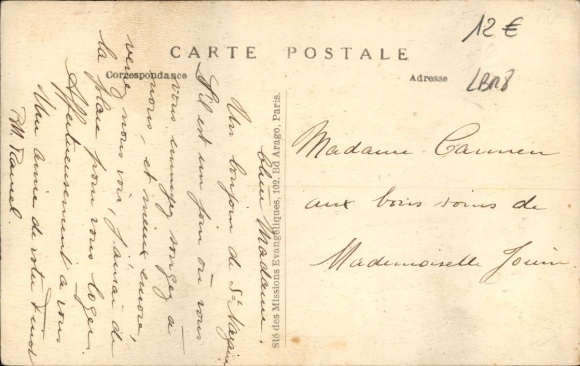 12 €
CARTE POSTALE
Correspondance
Adresse
LBR8
Madame Carmien
aux bons soins de
Mademoiselle Jouin
Sté des Missions Evangéliques, 102, Bd Arago, Paris.
chère Madame.
Un bonjour de St Nazaire
S'il est un jour où vous
vous ennuyez songez à
nous, et mieux encore,
venez nous voir, j'aurai de
la place pour vous loger.
Affectueusement à vous
Une amie de votre
M.